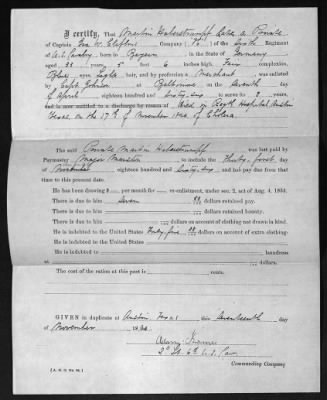 I certify, That Martin Haberstrumpf late a Private
of Captain Ira W. Claflin's Company ( ) of the Sixth Regiment
of U.S. Cavalry, born in in the State of Germany,
aged years, 5 feet 6 inches high, Fair complexion,
Blue eyes, hair, and by profession a Merchant was enlisted
by Capt Johnson at Baltimore on the Seventh
of April eighteen hundred and to serve years,
and is now entitled to discharge by reason of Died in Regtl Hospital Austin
Texas on the 17th of November of Cholera
The said Private Martin Haberstrumpf was last paid by
Paymaster Major to include the Thirty first day
of eighteen hundred and Sixty six and has pay due from that
time to the present date.
He has been drawing $ per month for re-enlistment, under sec. 2, act of Aug. 4, 1854.
There is due to him Seven dollars retained pay.
There is due to him dollars retained bounty.
There is due to him dollars on account of clothing not drawn in kind.
He is indebted to the United States Thirty five dollars on account of extra clothing.
He is indebted to the United States
He is indebted to laundress
at dollars.
The cost of the ration at this post is cents.
GIVEN in duplicate at Austin, Texas this Seventeenth day
of November 18
Adam Kramer
2d Lt. 6th U.S. Cav
Commanding Company